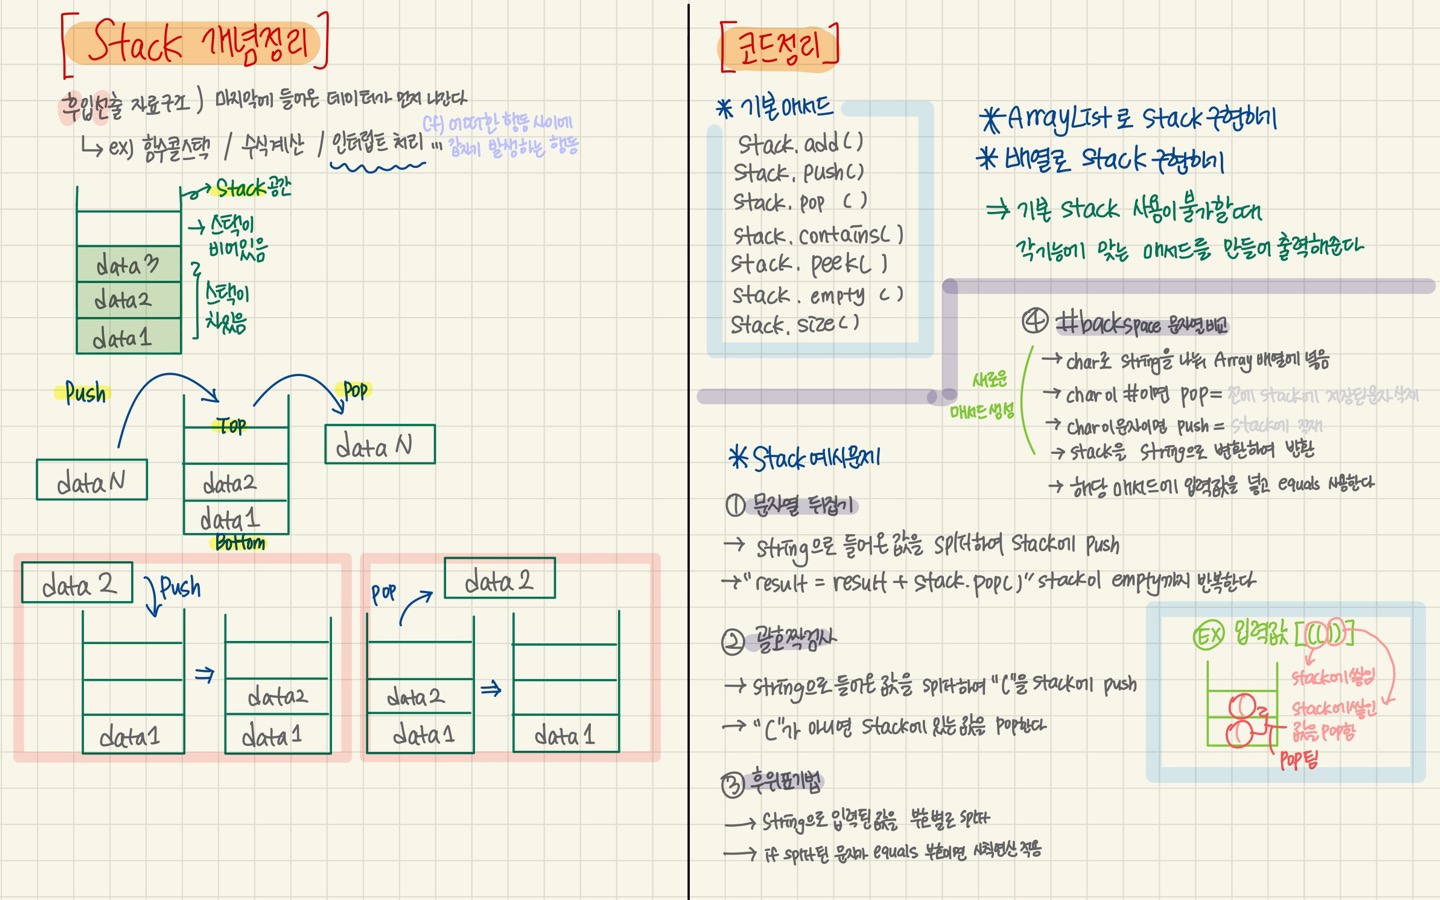 [Stack 개념정리]
후입선출 자료구조) 마지막에 들어온 데이터가 먼저 나간다
↳ ex) 함수콜스택 / 수식계산 / 인터럽트 처리 ...
cf) 어떠한 행동 사이에
갑자기 발생하는 행동
→ Stack 공간
→ 스택이
비어있음
data3
data2
data1
스택이
차있음
Push
Pop
Top
data N
data N
data2
data1
Bottom
data 2
Push
data1
⇒
data2
data1
pop
data 2
data2
data1
⇒
data1
[코드정리]
* 기본매서드
Stack.add()
Stack.push()
Stack.pop ()
Stack.contains()
Stack.peek()
Stack.empty ()
Stack.size()
* ArrayList로 Stack구현하기
* 배열로 Stack 구현하기
⇒ 기본 Stack 사용이불가할때
각기능에 맞는 매서드를 만들어 출력해준다
④ #backspace 문자열비교
새로운
매서드생성
→ char로 string을 나눠 Array 배열에 넣음
→ char이 #이면 pop=
stack에 저장된문자삭제
→ char이문자이면 push =
stack에
→ stack을 String으로 변환하여 반환
→ 해당 매서드에 입력값을 넣고 equals 사용한다
* Stack예시문제
① 문자열 뒤집기
→ string으로 들어온 값을 split하여 Stack에 push
→ "result = result + Stack.pop()" stack이 empty까지 반복한다
② 괄호짝검사
→ string으로 들어온 값을 split하여 "("을 stack에 push
→ "("가 아니면 Stack에 있는값을 pop한다
EX 입력값 [(())]
stack에쌓임
stack에쌓인
값을 pop함
pop됨
③ 후위표기법
→ String으로 입력된값을 부호별로 split
→ if split된 문자가 equals 부호이면 사칙연산 적용